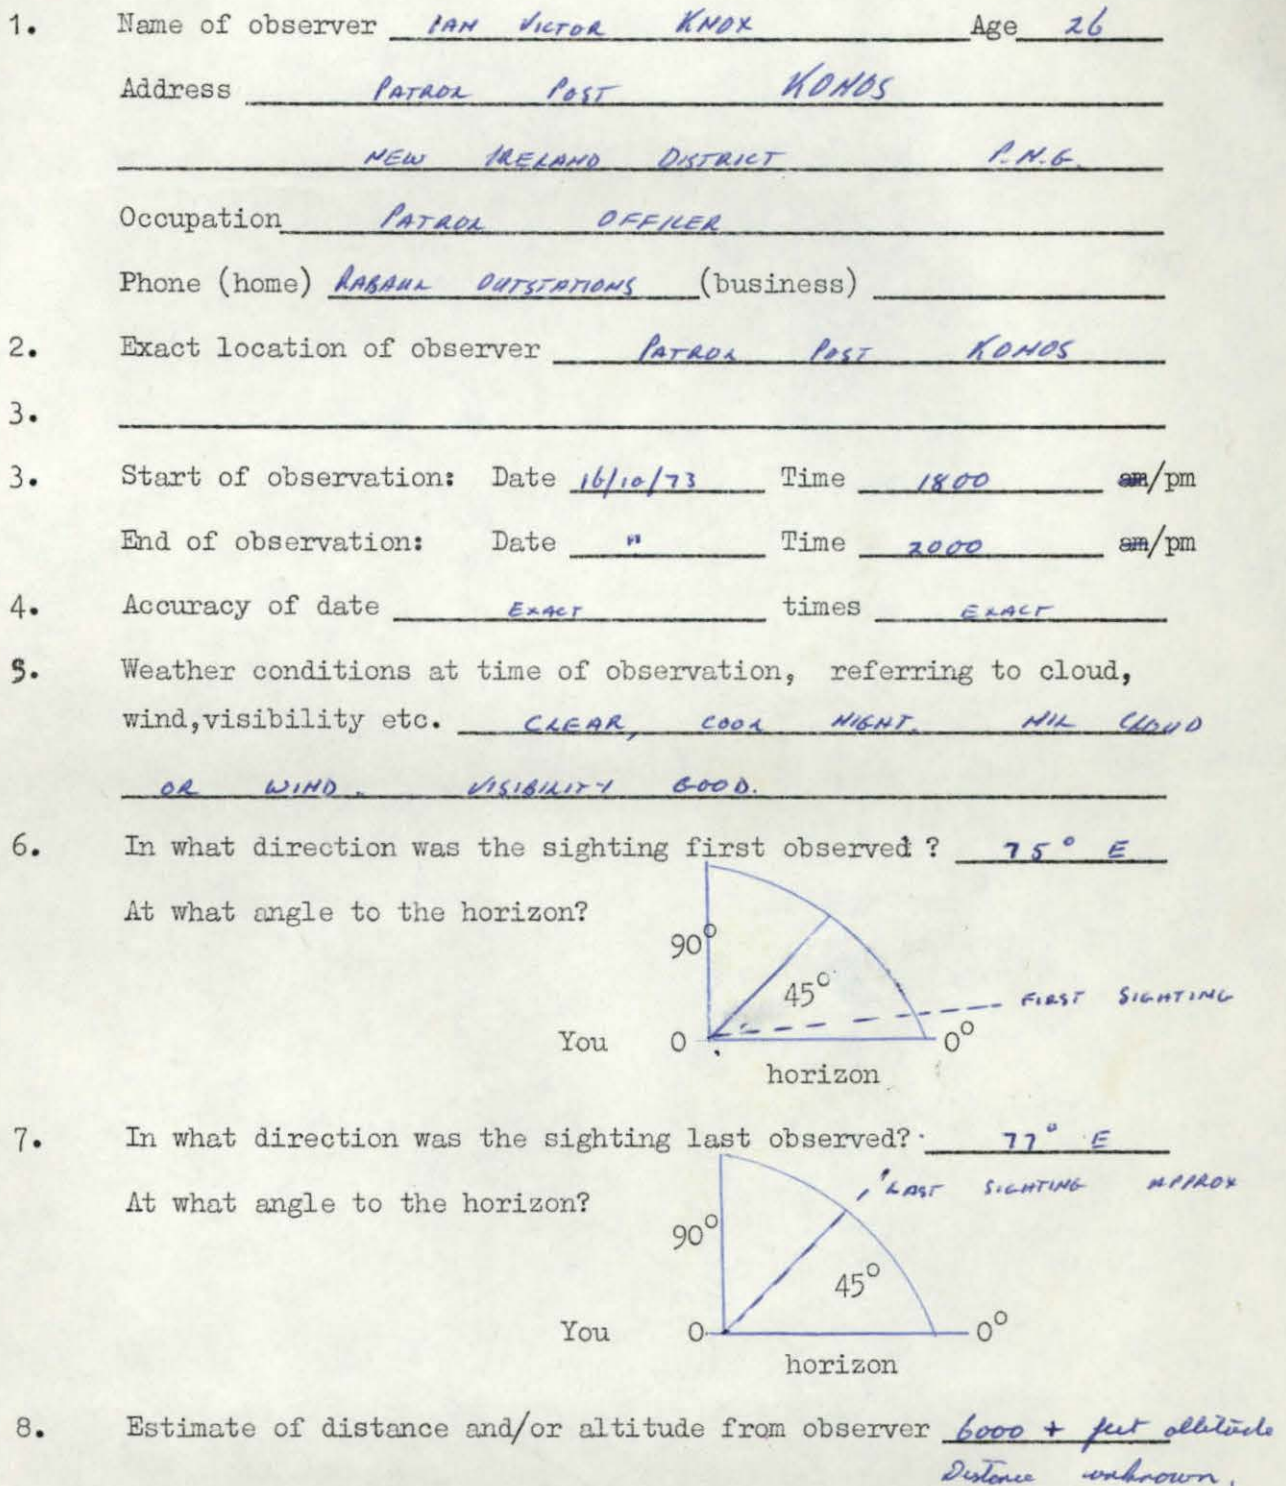 1. Name of observer IAN VICTOR KNOX Age 26
Address PATROL POST KONOS
NEW IRELAND DISTRICT P.N.G.
Occupation PATROL OFFICER
Phone (home) RABAUL OUTSTATIONS (business)
2. Exact location of observer PATROL POST KONOS
3.
3. Start of observation: Date 16/10/73 Time 1800 am/pm
End of observation: Date " Time 2000 am/pm
4. Accuracy of date EXACT times EXACT
5. Weather conditions at time of observation, referring to cloud,
wind,visibility etc. CLEAR, COOL NIGHT. NIL CLOUD
OR WIND. VISIBILITY GOOD.
6. In what direction was the sighting first observed ? 75° E
At what angle to the horizon?
90°
45°
FIRST SIGHTING
You 0 0°
horizon
7. In what direction was the sighting last observed? 77° E
At what angle to the horizon?
LAST SIGHTING APPROX
90°
45°
You 0 0°
horizon
8. Estimate of distance and/or altitude from observer 6000 + feet altitude
Distance unknown.